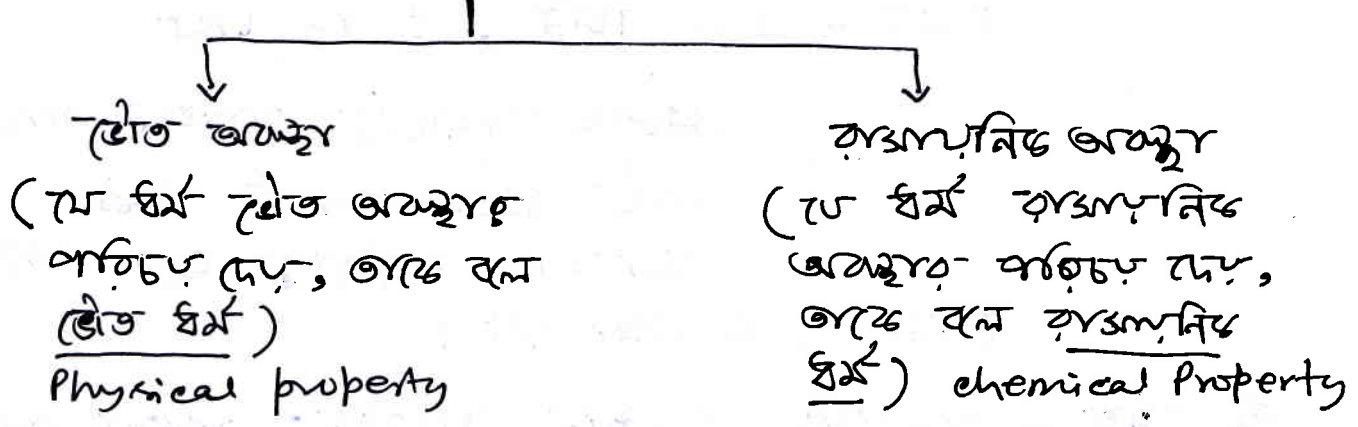 ভৌত অবস্থা
(যে ধর্ম ভৌত অবস্থার
পরিচয় দেয়, তাকে বলে
ভৌত ধর্ম)
Physical property
রাসায়নিক অবস্থা
(যে ধর্ম রাসায়নিক
অবস্থার পরিচয় দেয়,
তাকে বলে রাসায়নিক
ধর্ম) chemical Property